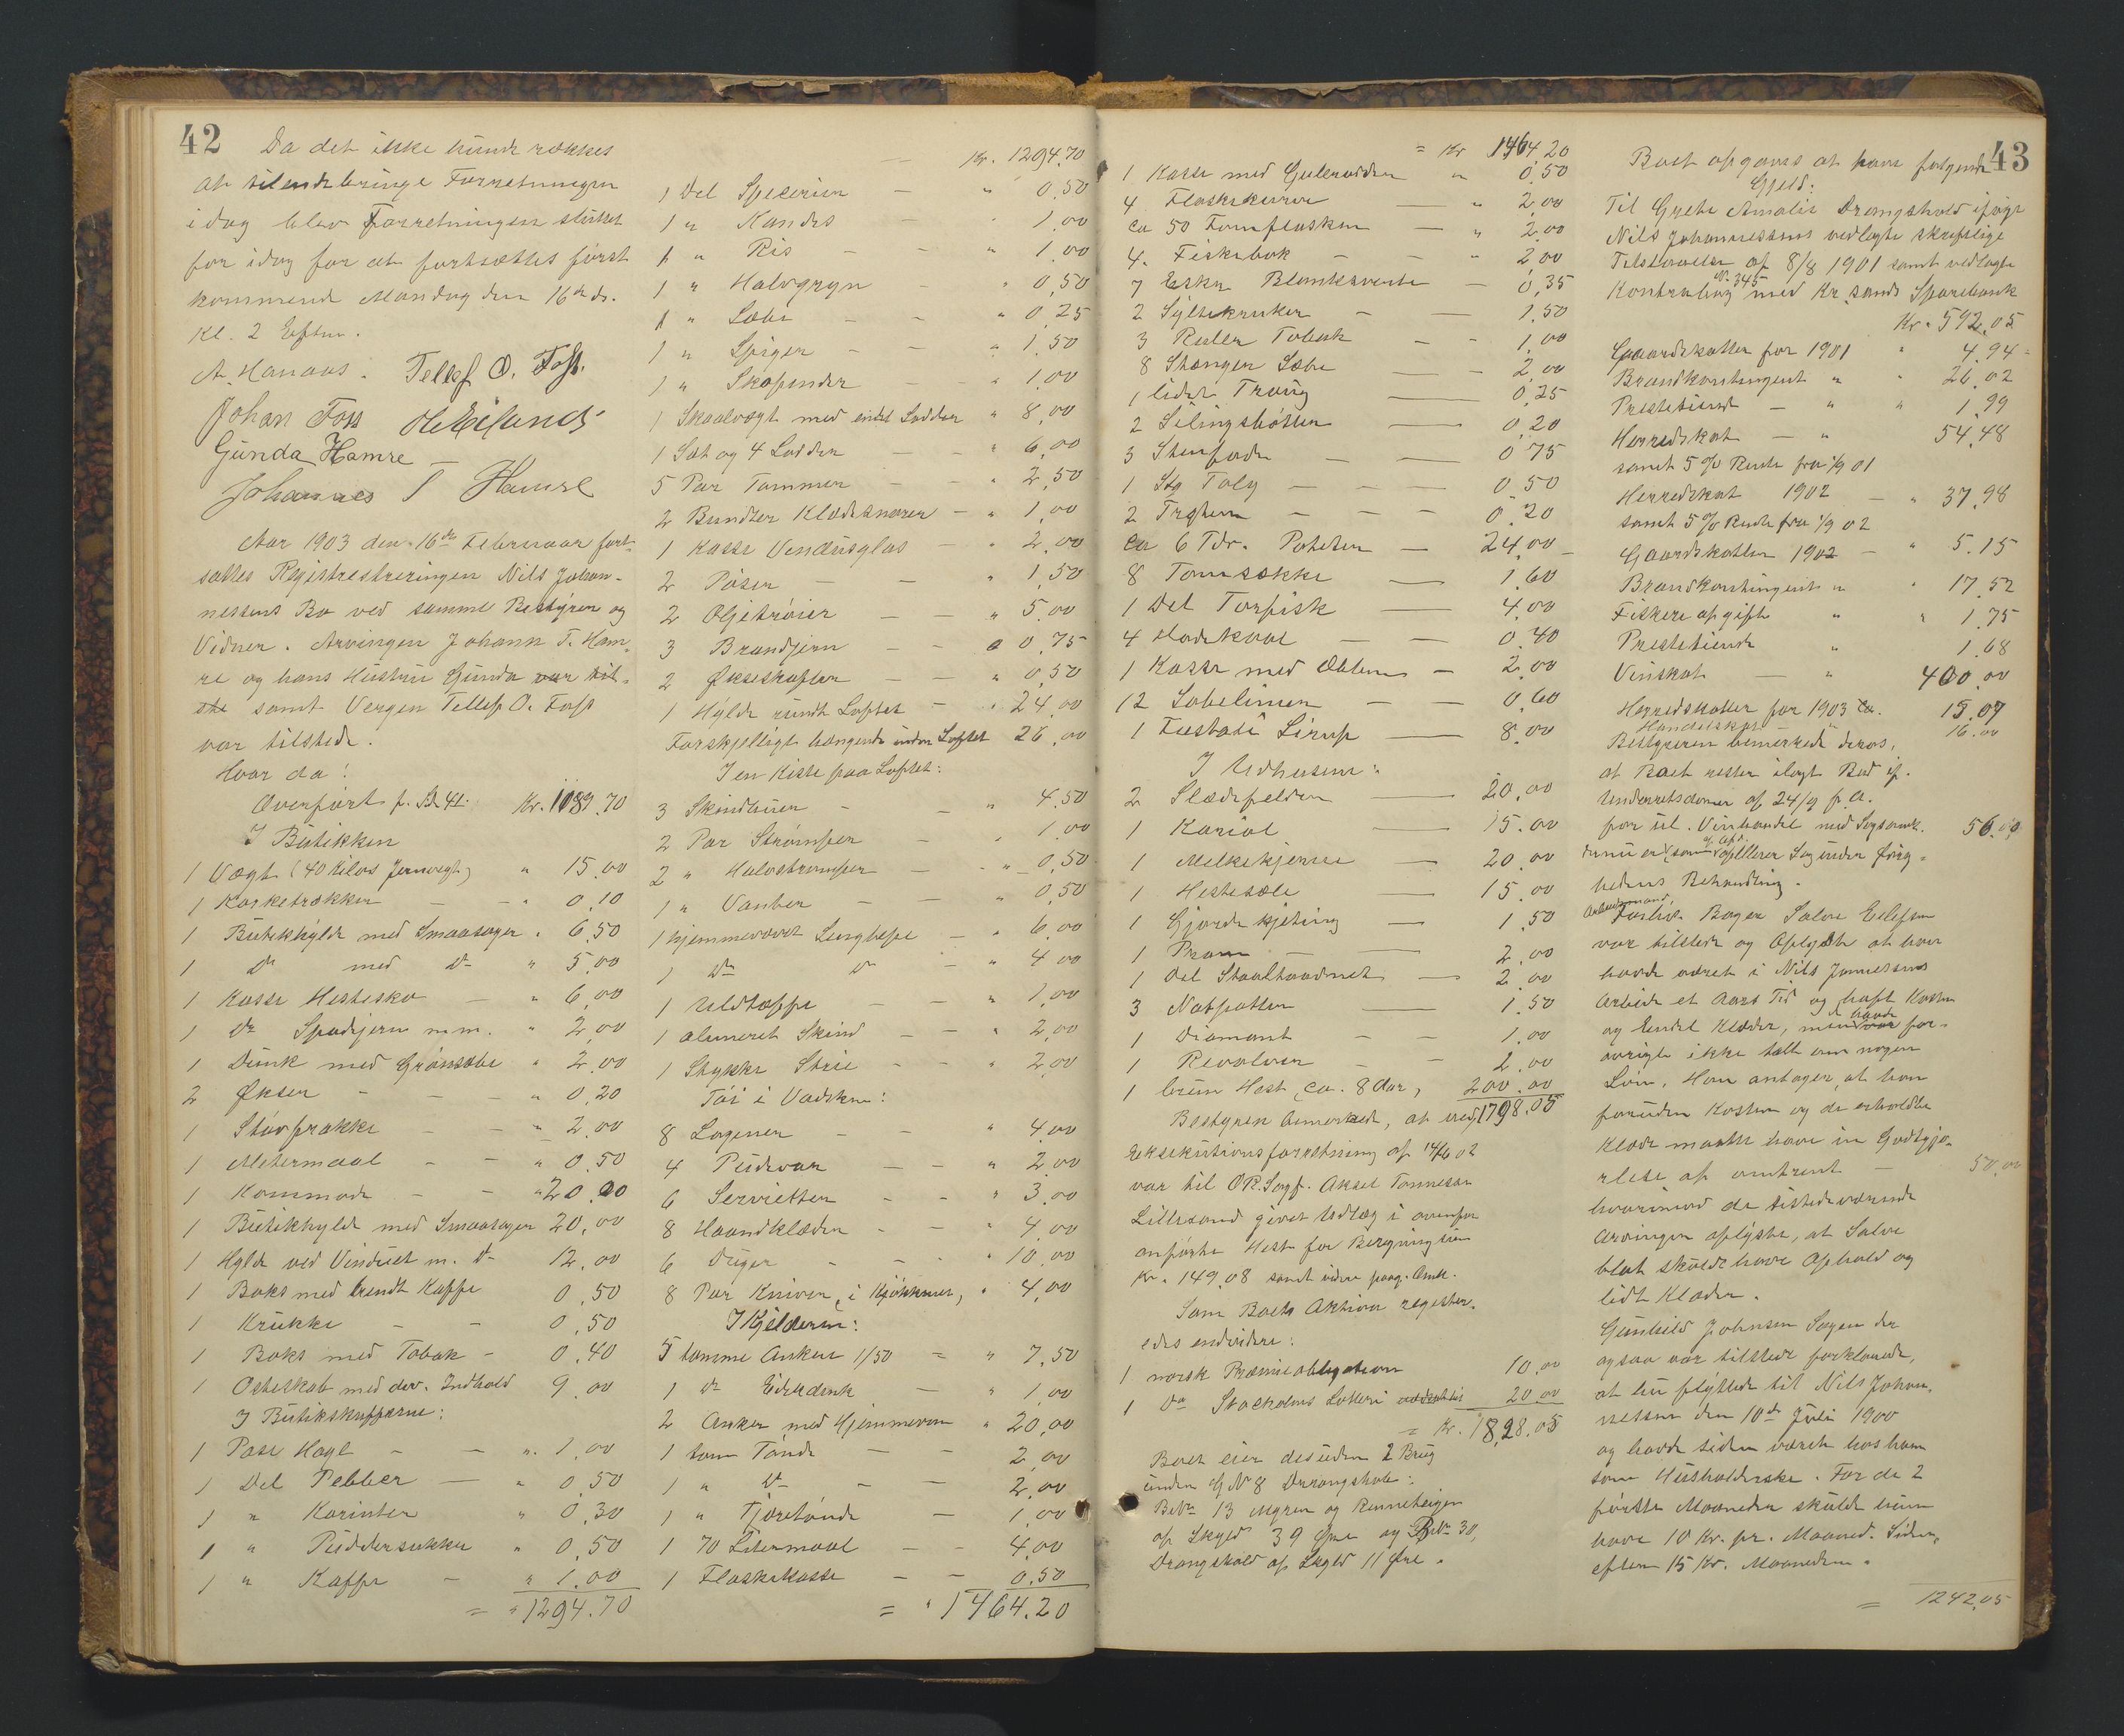 42
Da det ikke kunde rækkes
at tilendebringe Forretningen
idag blev Forretningen sluttet
for idag for at fortsættes først
kommende Mandag den 16de ds.
Kl. 2 Eftm.
A. Hanaas. Tellef O. Foss.
Johan Foss O Eieland
Gunda Hamre
Johannes T Hamre
Aar 1903 den 16de Februar fort-
sattes Registreringen Nils Johan-
nessens Bo ved samme Bestyrer og
Vidner. Arvingen Johann T. Ham-
re og hans Hustru Gunda var til-
ste samt Vergen Tellef O. Foss
var tilstede.
Hvor da:
Overført f. Sd. 41. Kr. 1189.70
I Butikken
1 Vægt (40 Kilos Jernvegt) " 15.00
1 Korketrækker - - " 0.10
1 Butikhylde med Smaasager " 6.50
1 do med do " 5.00
1 Kasse Hestesko - " 6.00
1 do Spadejern m.m. " 2.00
1 Dunk med Grønsæbe " 2.00
2 Økser - - - " 0.20
1 Støvfrakke - - " 2.00
1 Metermaal - - " 0.50
1 Kommode - - " 20.00
1 Butikhylde med Smaasager 20.00
1 Hylde ved Vinduet m. do 12.00
1 Boks med brendt Kaffe 0.50
1 Krukke - - 0.50
1 Boks med Tobak - 0.40
1 Osteskab med div. Indhold 9.00
I Butikskufferne:
1 Pose Hagl - - " 1.00
1 Del Pebber - " 0.50
1 " Korinter " 0.30
1 " Puddersukker " 0.50
1 " Kaffe - " 1.00
= " 1294.70
Kr. 1294.70
1 Del Specerier - " 0.50
1 " Kandis - " 1.00
1 " Ris - - " 1.00
1 " Havregryn - " 0.50
1 " Sæbe - - " 0.25
1 " Spiger - - " 1.50
1 " Skopinder - " 1.00
1 Skaalvægt med endel Lodder " 8.00
1 Sæt og 4 Lodder - - " 6.00
5 Par Tømmer - - " 2.50
2 Bundter Klædesnører - " 1.00
1 Kasse Vinduesglas - " 2.00
2 Poser - - " 1.50
2 Oljetrøier - - " 5.00
3 Brandjern - - " 0.75
2 Økseskafter - - " 0.50
1 Hylde rundt Loftet - " 24.00
Forskjelligt hængende under Loftet 26.00
I en Kiste paa Loftet:
3 Skindluer - " 4.50
2 Par Strømper - " 1.00
2 " Halvstrømper - - " 0.50
1 " Vanter - - " 0.50
1 hjemmevævet Sengteppe - " 6.00
1 do do - " 4.00
1 Uldtæppe - - " 1.00
1 aluneret Skind - - " 2.00
1 Stykke Strie - - " 2.00
Tøi i Vadsken:
8 Lagener - - " 4.00
4 Pudevar - - " 2.00
6 Servietter - - " 3.00
8 Haandklæder - - " 4.00
6 Duger - - " 10.00
8 Par Kniver, i Kjøkkenet, " 4.00
I Kjelderen:
5 tomme Anker 1/50 = " 7.50
1 do Edikdunk - " 1.00
2 Anker med Hjemmevin " 20.00
1 tom Tønde - - 2.00
1 " do - - 2.00
1 " Tjæretønde - 1.00
1 70 Litermaal - - 4.00
1 Flaskekasse - - 0.50
= " 1464.20
43
= Kr 1464.20
1 Kasse med Gulerødder " 0.50
4 Flaskekurve - " 2.00
ca 50 Tomflasker - " 2.00
4. Fiskebak - - - 2.00
7 Esker Blanksverte - 0.35
2 Syltekrukker - - 1.50
3 Ruler Tobak - - 1.00
8 Stænger Sæbe - - 2.00
1 lidet Traug - 0.25
2 Silingsbøtter - 0.20
3 Stenfade - - 0.75
1 Stg Talg - - - 0.50
2 Tragter - - - 0.20
ca 6 Tdr. Poteter - 24.00
8 Tomsække - 1.60
1 Del Tørfisk - 4.00
4 Hodekaal - - 0.40
1 Kasse med Æbler - 2.00
12 Løbelinien - - 0.60
1 Fustasi Sirup - 8.00
I Udhusene:
2 Slædefelder - 20.00
1 Kariol - 15.00
1 Melkekjerre - 20.00
1 Hestesele - 15.00
1 Gjordekjeting - 1.50
1 Pram - - 2.00
1 Del Staaltraadnet - 2.00
3 Natpotter - 1.50
1 Diamant - - 1.00
1 Revolver - 2.00
1 brun Hest, ca. 8 Aar, 200.00
1798.05
Bestyren bemerkede, at ved
Eksekutionsforretning af 14/6 02
var til OR. Sagf. Aksel Tønnesen
Lillesand givet Udlæg i ovenfor
anførte Hest for Beregning sin
Kr. 149.08 samt videre paag. Omk.
Som Boets Aktiva register-
edes endvidere:
1 norsk Præmieobligation 10.00
1 do Stockholms Lotteri 20.00
= Kr. 1828.05
Boet eier desuden 2 Brug
under G No 8 Drangsholt:
BNo 13 Myren og Renneheigen
af Skyld 39 Øre og BNo 30,
Drangshold af Skyld 11 Øre.
Boet opgaves at have følgende
Gjeld:
Til Grete Amalie Drangshold ifølge
Nils Johannessens vedlagte skriftlige
Tilstaaelse af 8/8 1901 samt vedlagte
No. 345
Kontrabog med Kr.sands Sparebank
Kr. 592.05
Gaardskatter for 1901 " 4.94
Brandkontingent " " 26.02
Prestetiende - " " 1.99
Herredskat - " 54.48
samt 5% Rente fra 1/9 01
Herredskat 1902 - " 37.98
samt 5% Rente fra 1/9 02
Gaardskatter 1902 - " 5.15
Brandkontingent " " 17.52
Fiskeriafgift " " 1.75
Prestetiende " 1.68
Vinskat - " 400.00
Herredskatter for 1903 ca. 15.07
Handelskat 16.00
Bestyreren bemerkede deros,
at Boet rester ilagt Bod if.
Underretsdomer af 24/9 f.A.
for ul. Vinhandel med Sagsomk. 56.00
Behandling.
Arbeidsmand,
Boger Salve Eilefsen
var tilstede og Oplyste at han
havde været i Nils Johannessens
Arbeide et Aars Tid og havt Kosten
og endel Klæder, men de havde for-
øvrigt ikke talt om nogen
Løn. Han antager, at han
foruden Kosten og de erholdte
Klæde maatte have en Godtgjø-
relse af omtrent - 50.00
hvorimod de tilstedeværende
Arvinger oplyste, at Salve
blot skulde have Ophold og
lidt Klæder.
Gunhild Johnsen Sagen der
ogsaa var tilstede forklarede,
at hun flyttede til Nils Johan-
nessen den 10de Juli 1900
og havde siden været hos ham
som Husholderske. For de 2
første Maaneder skulde hun
have 10 Kr. pr. Maaned. Siden,
efter 15 Kr. Maaneden.
= 1242.05